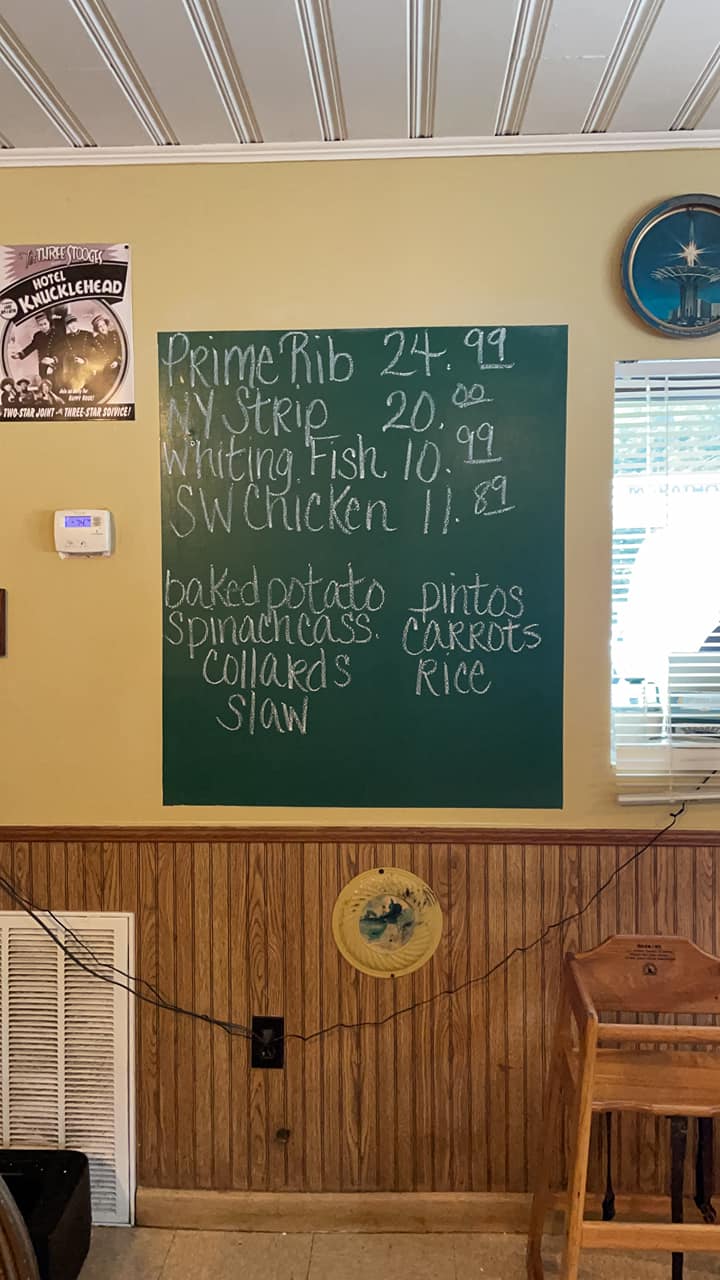 The THREE STOOGES
HOTEL
KNUCKLEHEAD
TWO-STAR JOINT THREE-STAR SOIVICE!
Prime Rib 24.99
NY Strip 20.00
Whiting Fish 10.99
SW Chicken 11.89
baked potato pintos
Spinach cass. CARROTS
Collards Rice
Slaw